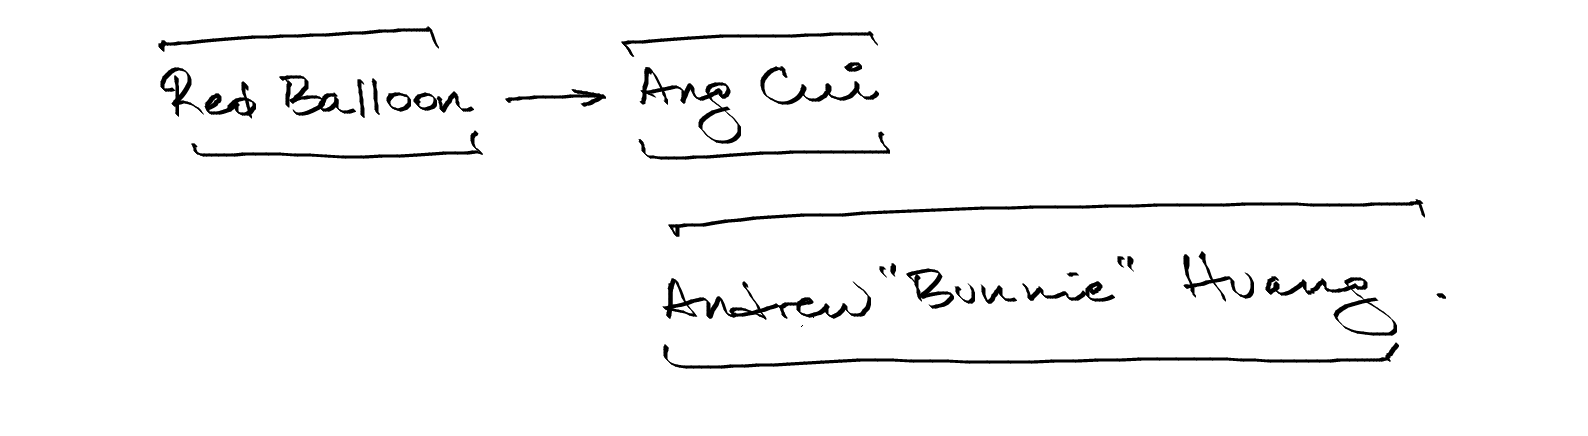 Red Balloon → Ang Cui
Andrew "Bunnie" Huang.